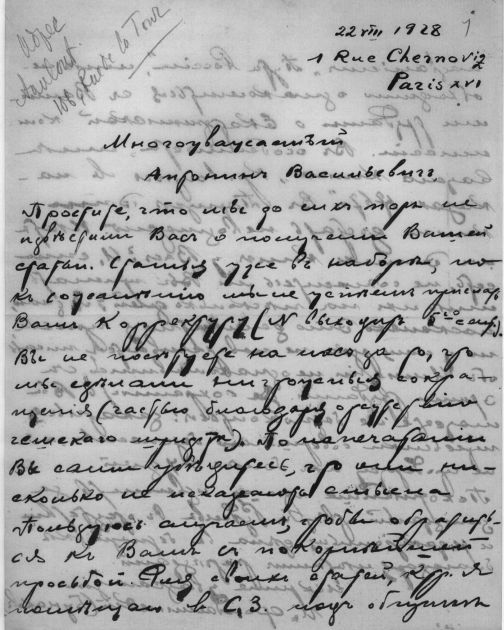 Адрес
108 Rue de la Tour
22 VIII 1928
1 Rue Chernoviz
Paris XVI
Многоуважаемый
Антонин Васильевич
Простите, что мы до сих пор не
известили Вас о получении Вашей
статьи. Статья уже въ наборѣ, но
къ сожалѣнію мы не успѣем прислать
Вам корректуру (N выходит 5го сент.).
Вы не посѣтуете на нас за то, что
мы сдѣлали ничтожныя сокра-
щенія (частью благодаря отсутствию
чешского шрифта). По напечатании
Вы сами убѣдитесь, что они ни-
сколько не искажают смысла
Пользуюсь случаем, чтобы обратить-
ся къ Вам съ покорнѣйшей
просьбой. Для своих статей, кот. я
помѣщаю в С.З. под общим